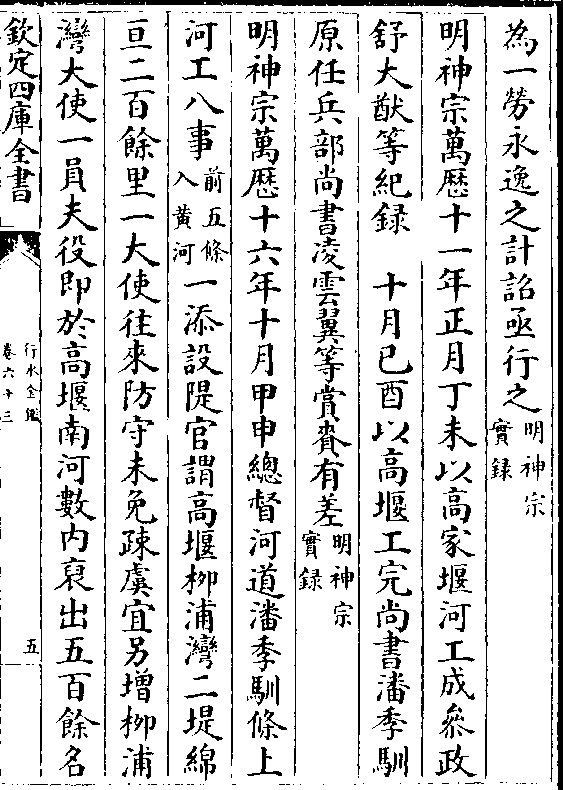 為一勞永逸之計詔亟行之明神宗實録
明神宗萬厯十一年正月丁未以高家堰河工成參政
舒大猷等紀録　十月己酉以高堰工完尚書潘季馴
原任兵部尚書凌雲翼等賞賚有差明神宗實録
明神宗萬厯十六年十月甲申總督河道潘季馴條上
河工八事前五條入黄河一添設隄官謂高堰栁浦灣二堤綿
亘二百餘里一大使往來防守未免疎虞宜另增栁浦
灣大使一員夫役即於高堰南河數内裒出五百餘名
欽定四庫全書
行水金鑑
卷六十三
五